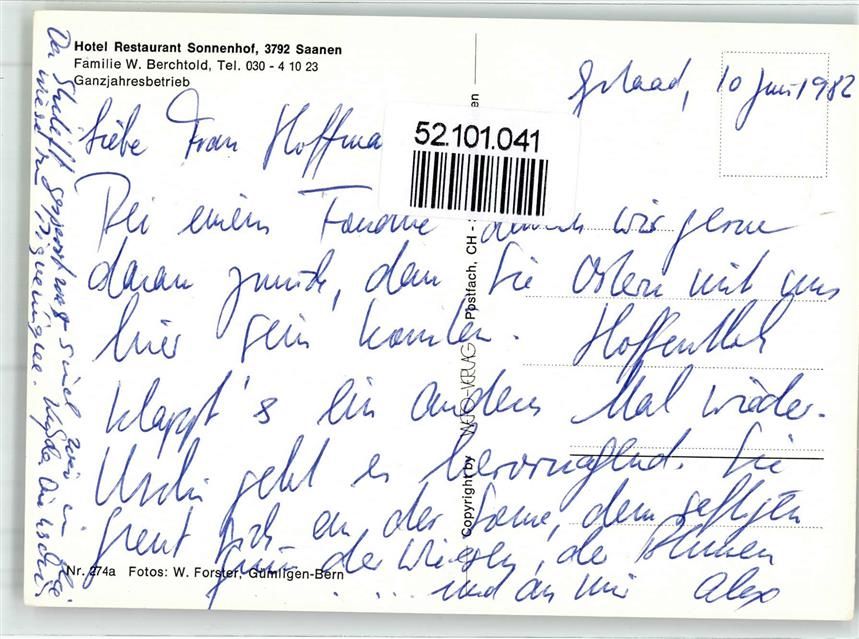 Hotel Restaurant Sonnenhof, 3792 Saanen
Familie W. Berchtold, Tel. 030 - 4 10 23
Ganzjahresbetrieb
Gstaad, 10 Juni 1982
52.101.041
Liebe Frau Hoffma
Bei einem Fondue denken wir gerne
daran zurück, dass Sie Ostern mit uns
hier sein konnten. Hoffentlich
klappt's ein anderes Mal wieder.
Uschi geht es hervorragend. Sie
freut sich an der Sonne, dem saftigen
Grün der Wiesen, der Blumen
.... und an mir Alex
Nr. 274a Fotos: W. Forster, Gümligen-Bern
Copyright by VERLAG Postfach, CH -
en
Der Stift sind wir in
wieder